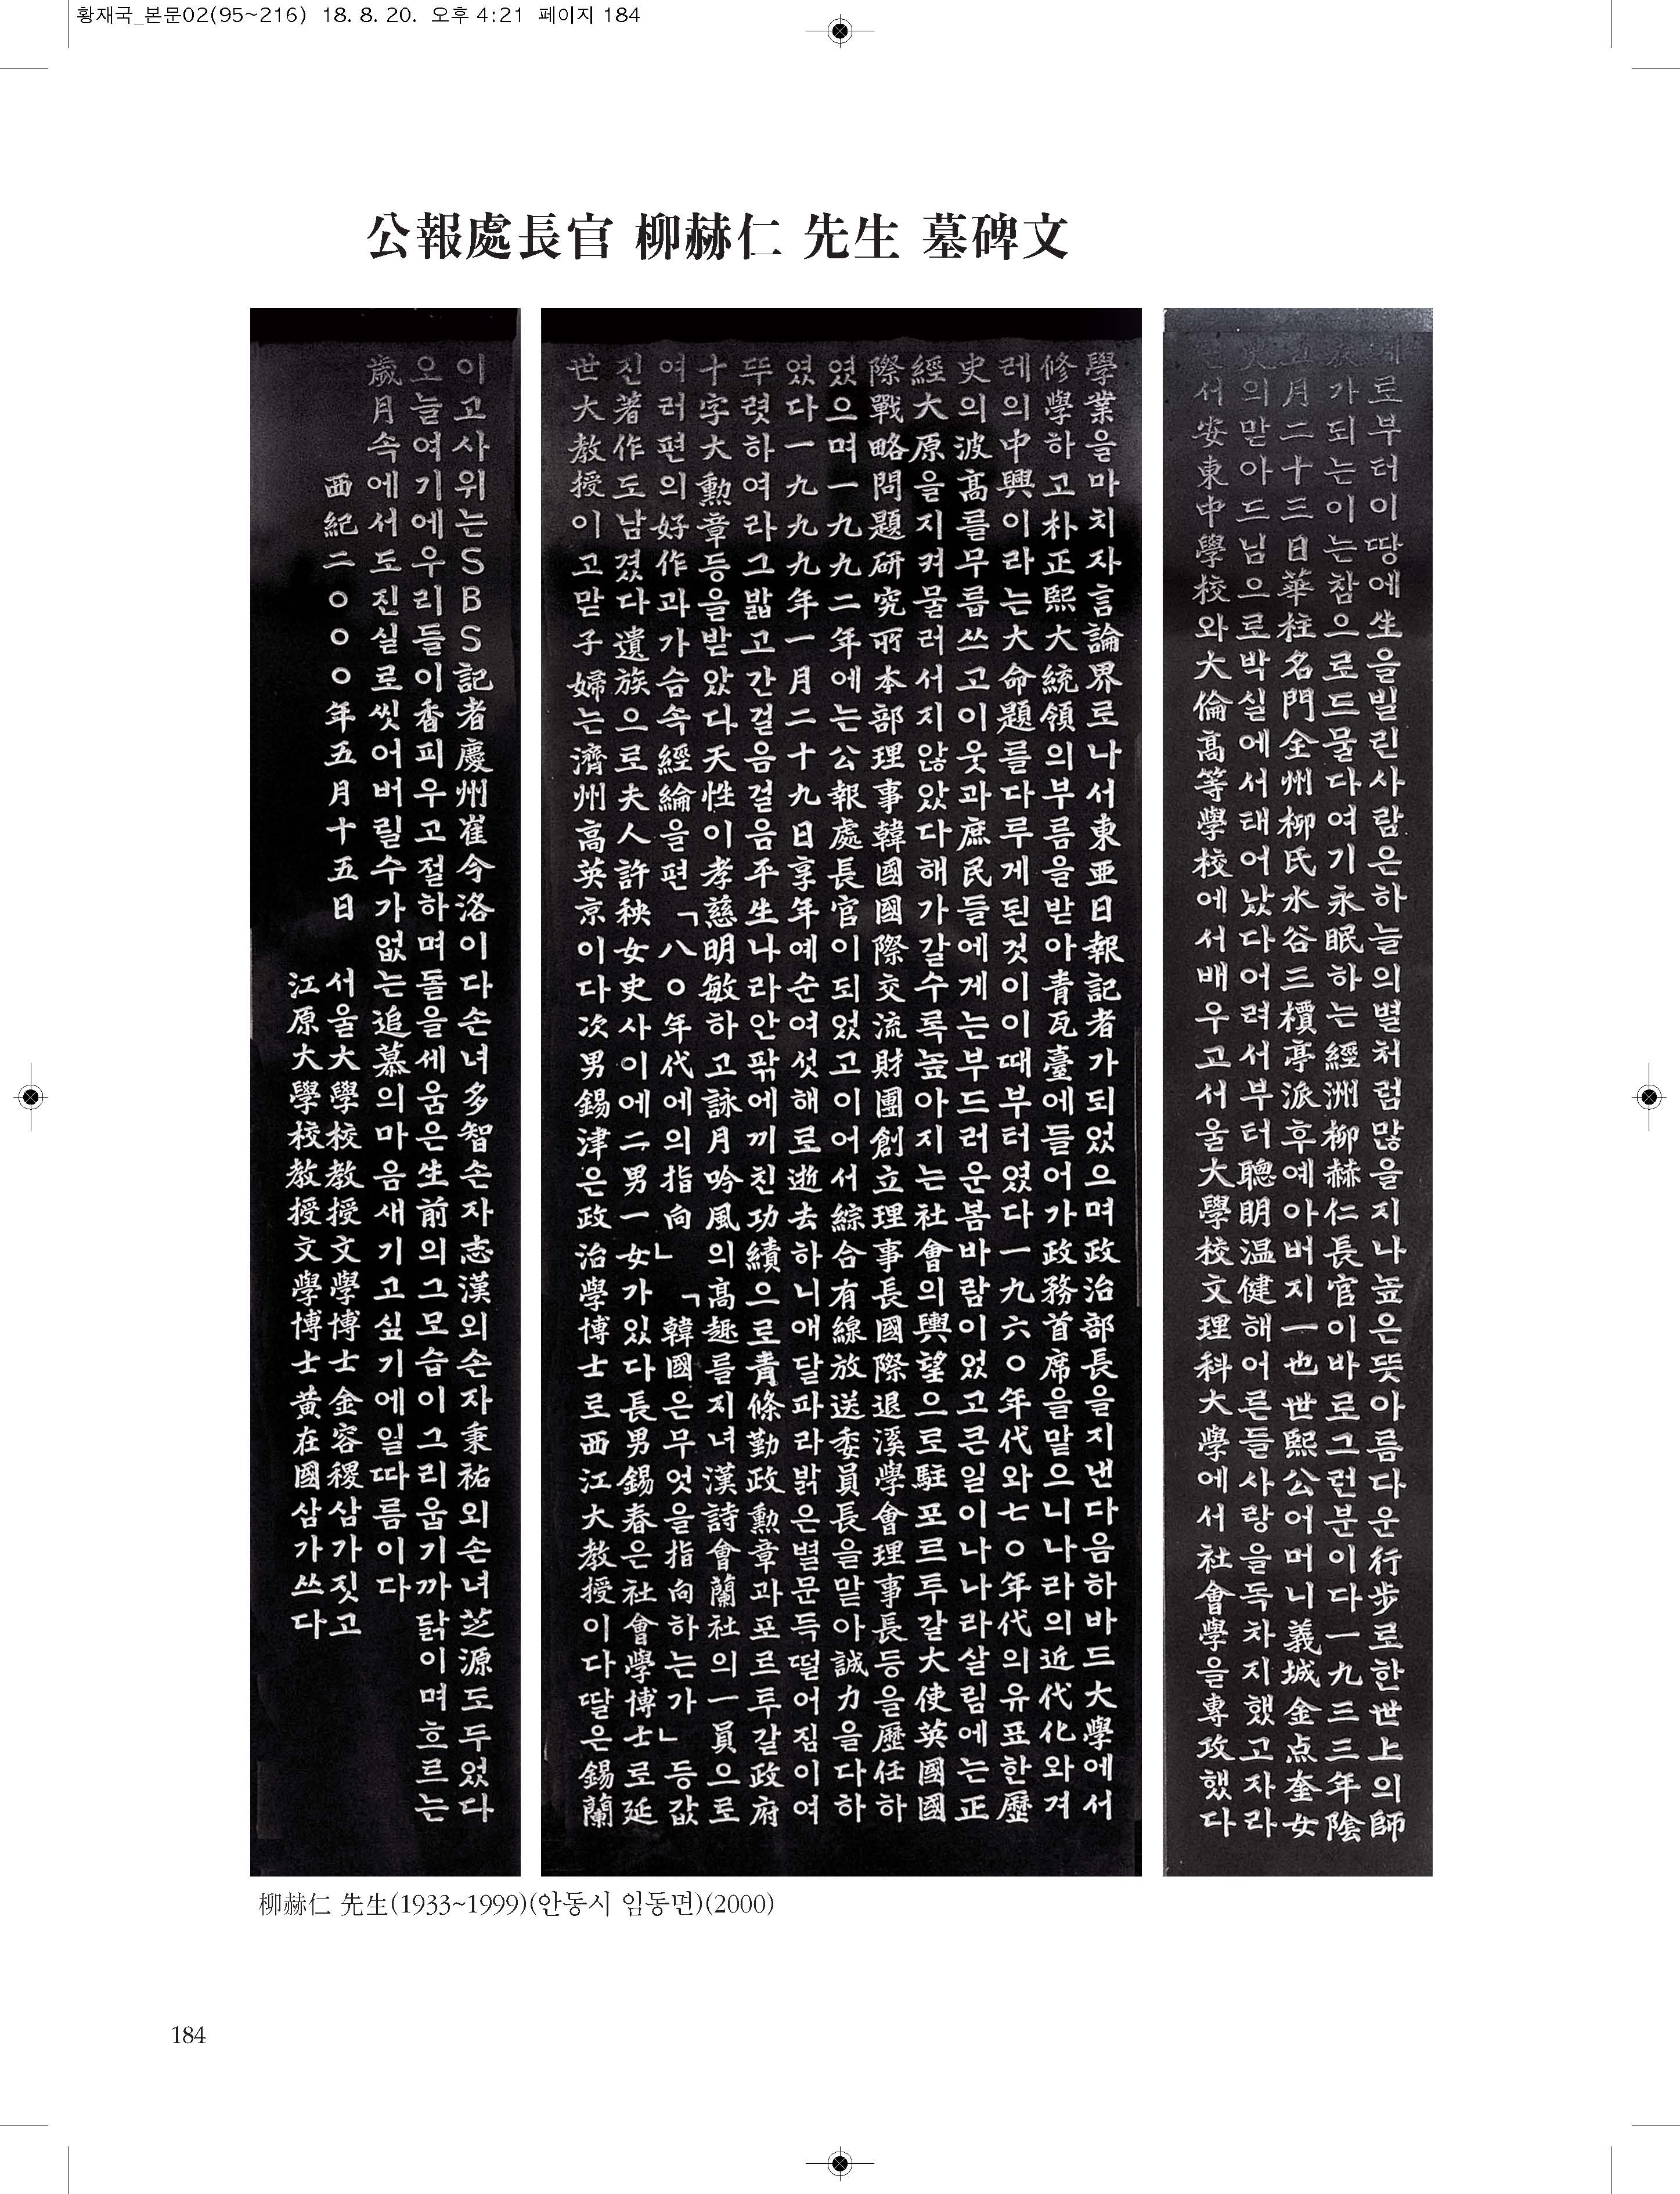 황재국_본문02(95~216) 18. 8. 20. 오후 4:21 페이지 184
公報處長官 柳赫仁 先生 墓碑文
예로부터이땅에生을빌린사람은하늘의별처럼많을지나높은뜻아름다운行步로한世上의師
表가되는이는참으로드물다여기永眠하는經洲柳赫仁長官이바로그런분이다一九三三年陰
五月二十三日華柱名門全州柳氏水谷三檟亭派후예아버지一也世熙公어머니義城金点奎女
史의맏아드님으로박실에서태어났다어려서부터聰明温健해어른들사랑을독차지했고자라
면서安東中學校와大倫高等學校에서배우고서울大學校文理科大學에서社會學을專攻했다
學業을마치자言論界로나서東亜日報記者가되었으며政治部長을지낸다음하바드大學에서
修學하고朴正熙大統領의부름을받아青瓦臺에들어가政務首席을맡으니나라의近代化와겨
레의中興이라는大命題를다루게된것이이때부터였다一九六○年代와七○年代의유표한歷
史의波高를무릅쓰고이웃과庶民들에게는부드러운봄바람이었고큰일이나나라살림에는正
經大原을지켜물러서지않았다해가갈수록높아지는社會의輿望으로駐포르투갈大使英國國
際戰略問題研究所本部理事韓國國際交流財團創立理事長國際退溪學會理事長등을歷任하
였으며一九九二年에는公報處長官이되었고이어서綜合有線放送委員長을맡아誠力을다하
였다一九九九年一月二十九日享年예순여섯해로逝去하니애달파라밝은별문득떨어짐이여
뚜렷하여라그밟고간걸음걸음平生나라안팎에끼친功績으로青條勤政勳章과포르투갈政府
十字大勳章등을받았다天性이孝慈明敏하고詠月吟風의高趣를지녀漢詩會蘭社의一員으로
여러편의好作과가슴속經綸을편「八○年代에의指向」「韓國은무엇을指向하는가」등값
진著作도남겼다遺族으로夫人許秧女史사이에二男一女가있다長男錫春은社會學博士로延
世大教授이고맏子婦는濟州高英京이다次男錫津은政治學博士로西江大教授이다딸은錫蘭
이고사위는SBS記者慶州崔今洛이다손녀多智손자志漢외손자秉祐외손녀芝源도두었다
오늘여기에우리들이香피우고절하며돌을세움은生前의그모습이그리웁기까닭이며흐르는
歲月속에서도진실로씻어버릴수가없는追慕의마음새기고싶기에일따름이다
西紀二○○○年五月十五日 서울大學校教授文學博士金容稷삼가짓고
江原大學校教授文學博士黃在國삼가쓰다
柳赫仁 先生(1933~1999)(안동시 임동면)(2000)
184